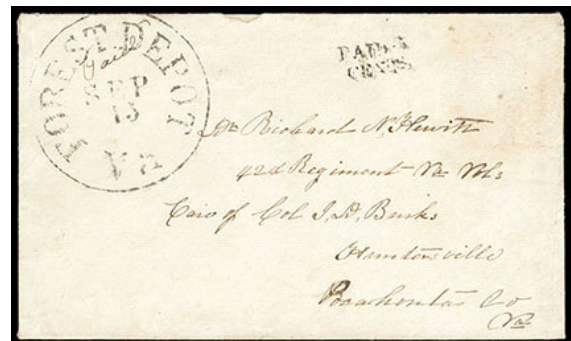 FOREST DEPOT
Paid
SEP
13
Va
PAID 5
CENTS
Mr Richard N. Hewitt
42d Regiment Va Vols
Care of Col J. A. Burks
Huntersville
Pocahontas Co
Va